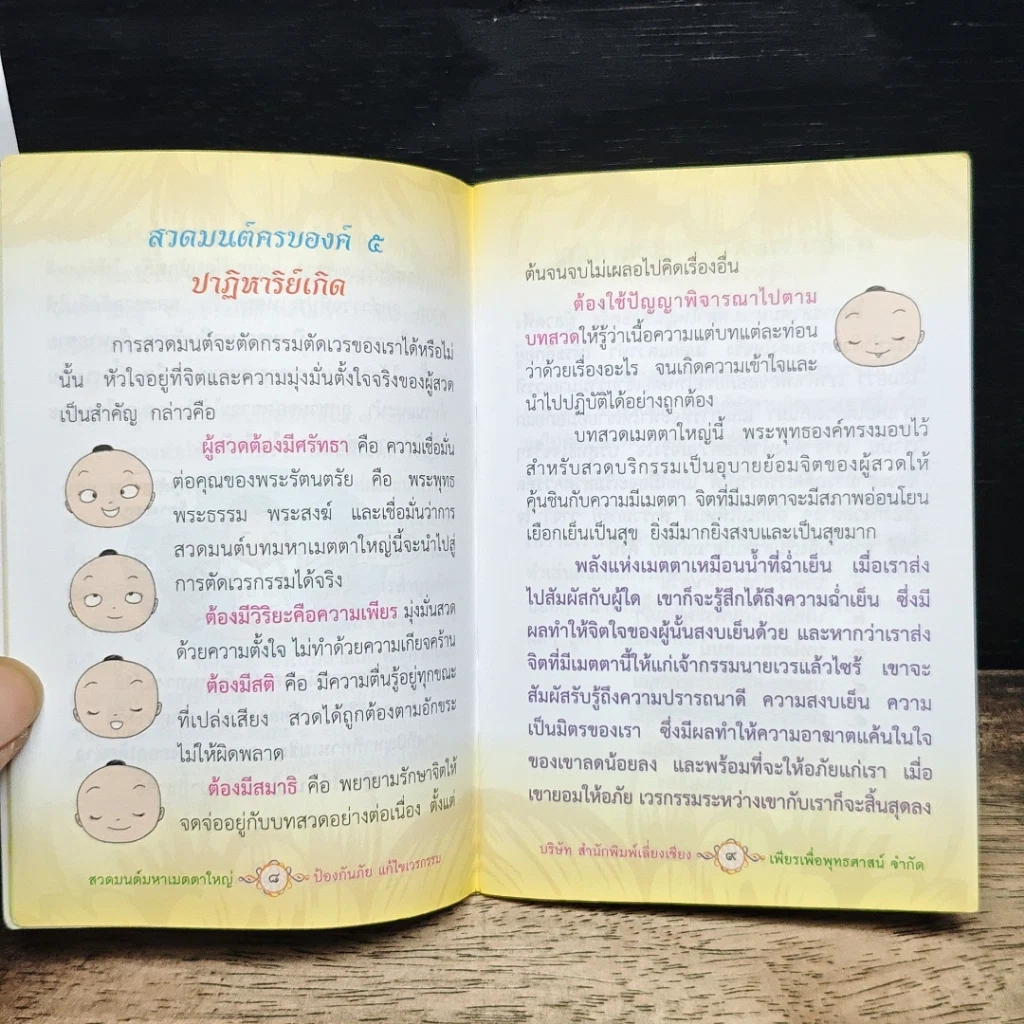 สวดมนต์ครบองค์ ๕
ปาฏิหาริย์เกิด
การสวดมนต์จะตัดกรรมตัดเวรของเราได้หรือไม่
นั้น หัวใจอยู่ที่จิตและความมุ่งมั่นตั้งใจจริงของผู้สวด
เป็นสำคัญ กล่าวคือ
ผู้สวดต้องมีศรัทธา คือ ความเชื่อมั่น
ต่อคุณของพระรัตนตรัย คือ พระพุทธ
พระธรรม พระสงฆ์ และเชื่อมั่นว่าการ
สวดมนต์บทมหาเมตตาใหญ่นี้จะนำไปสู่
การตัดเวรกรรมได้จริง
ต้องมีวิริยะคือความเพียร มุ่งมั่นสวด
ด้วยความตั้งใจ ไม่ทำด้วยความเกียจคร้าน
ต้องมีสติ คือ มีความตื่นรู้อยู่ทุกขณะ
ที่เปล่งเสียง สวดได้ถูกต้องตามอักขระ
ไม่ให้ผิดพลาด
ต้องมีสมาธิ คือ พยายามรักษาจิตให้
จดจ่ออยู่กับบทสวดอย่างต่อเนื่อง ตั้งแต่
สวดมนต์มหาเมตตาใหญ่ ๘ ป้องกันภัย แก้ไขเวรกรรม
ต้นจนจบไม่เผลอไปคิดเรื่องอื่น
ต้องใช้ปัญญาพิจารณาไปตาม
บทสวดให้รู้ว่าเนื้อความแต่บทแต่ละท่อน
ว่าด้วยเรื่องอะไร จนเกิดความเข้าใจและ
นำไปปฏิบัติได้อย่างถูกต้อง
บทสวดเมตตาใหญ่นี้ พระพุทธองค์ทรงมอบไว้
สำหรับสวดบริกรรมเป็นอุบายย้อมจิตของผู้สวดให้
คุ้นชินกับความมีเมตตา จิตที่มีเมตตาจะมีสภาพอ่อนโยน
เยือกเย็นเป็นสุข ยิ่งมีมากยิ่งสงบและเป็นสุขมาก
พลังแห่งเมตตาเหมือนน้ำที่ฉ่ำเย็น เมื่อเราส่ง
ไปสัมผัสกับผู้ใด เขาก็จะรู้สึกได้ถึงความฉ่ำเย็น ซึ่งมี
ผลทำให้จิตใจของผู้นั้นสงบเย็นด้วย และหากว่าเราส่ง
จิตที่มีเมตตานี้ให้แก่เจ้ากรรมนายเวรแล้วไซร้ เขาจะ
สัมผัสรับรู้ถึงความปรารถนาดี ความสงบเย็น ความ
เป็นมิตรของเรา ซึ่งมีผลทำให้ความอาฆาตแค้นในใจ
ของเขาลดน้อยลง และพร้อมที่จะให้อภัยแก่เรา เมื่อ
เขายอมให้อภัย เวรกรรมระหว่างเขากับเราก็จะสิ้นสุดลง
บริษัท สำนักพิมพ์เลี่ยงเชียง ๙ เพียรเพื่อพุทธศาสน์ จำกัด